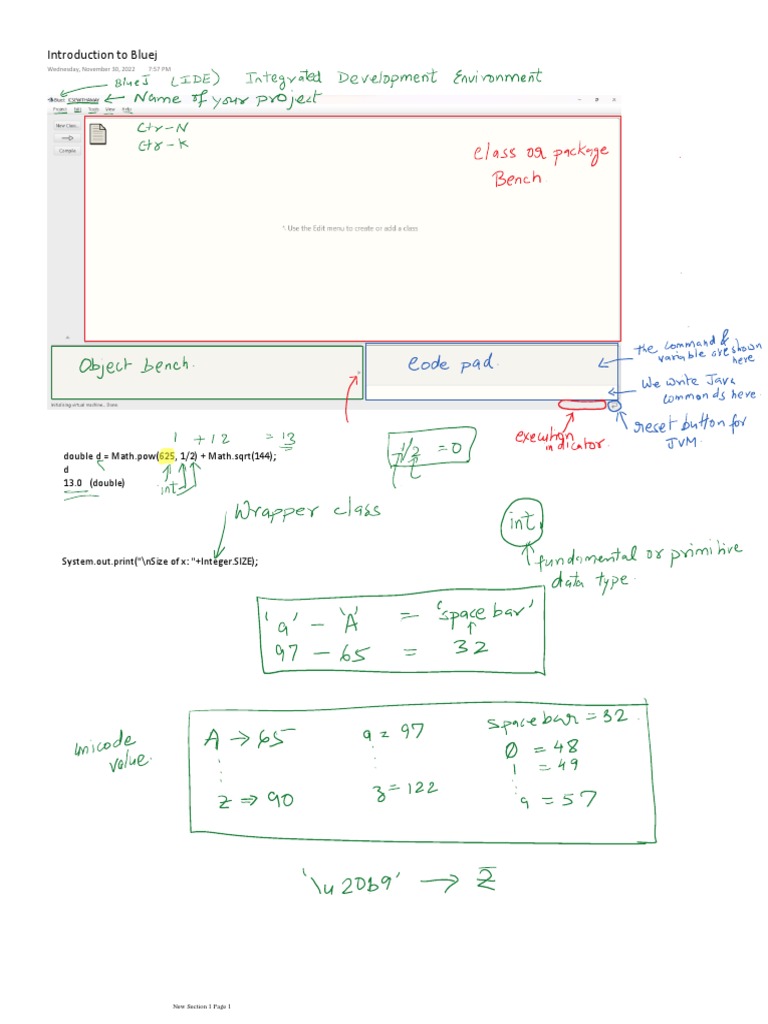 Introduction to Bluej
Wednesday, November 30, 2022 7:57 PM
BlueJ (IDE) Integrated Development Environment
Name of your project
Project Edit Tools View Help
New Class...
Compile
Ctr-N
Ctr-K
Class or package
Bench
Use the Edit menu to create or add a class
Object bench.
Code pad.
the command &
variable are shown
here
We write Java
commands here.
Initialising virtual machine... Done.
execution
indicator.
reset button for
JVM.
1 + 12 = 13
double d = Math.pow(625, 1/2) + Math.sqrt(144);
d
13.0 (double)
int
1/2 = 0
Wrapper class
int
fundamental or primitive
data type.
System.out.print("\nSize of x: "+Integer.SIZE);
'a' - 'A' = 'space bar'
97 - 65 = 32
unicode
value.
A → 65 a = 97 space bar = 32
0 = 48
1 = 49
z ⇒ 90 z = 122 9 = 57
'\u20b9' →
New Section 1 Page 1